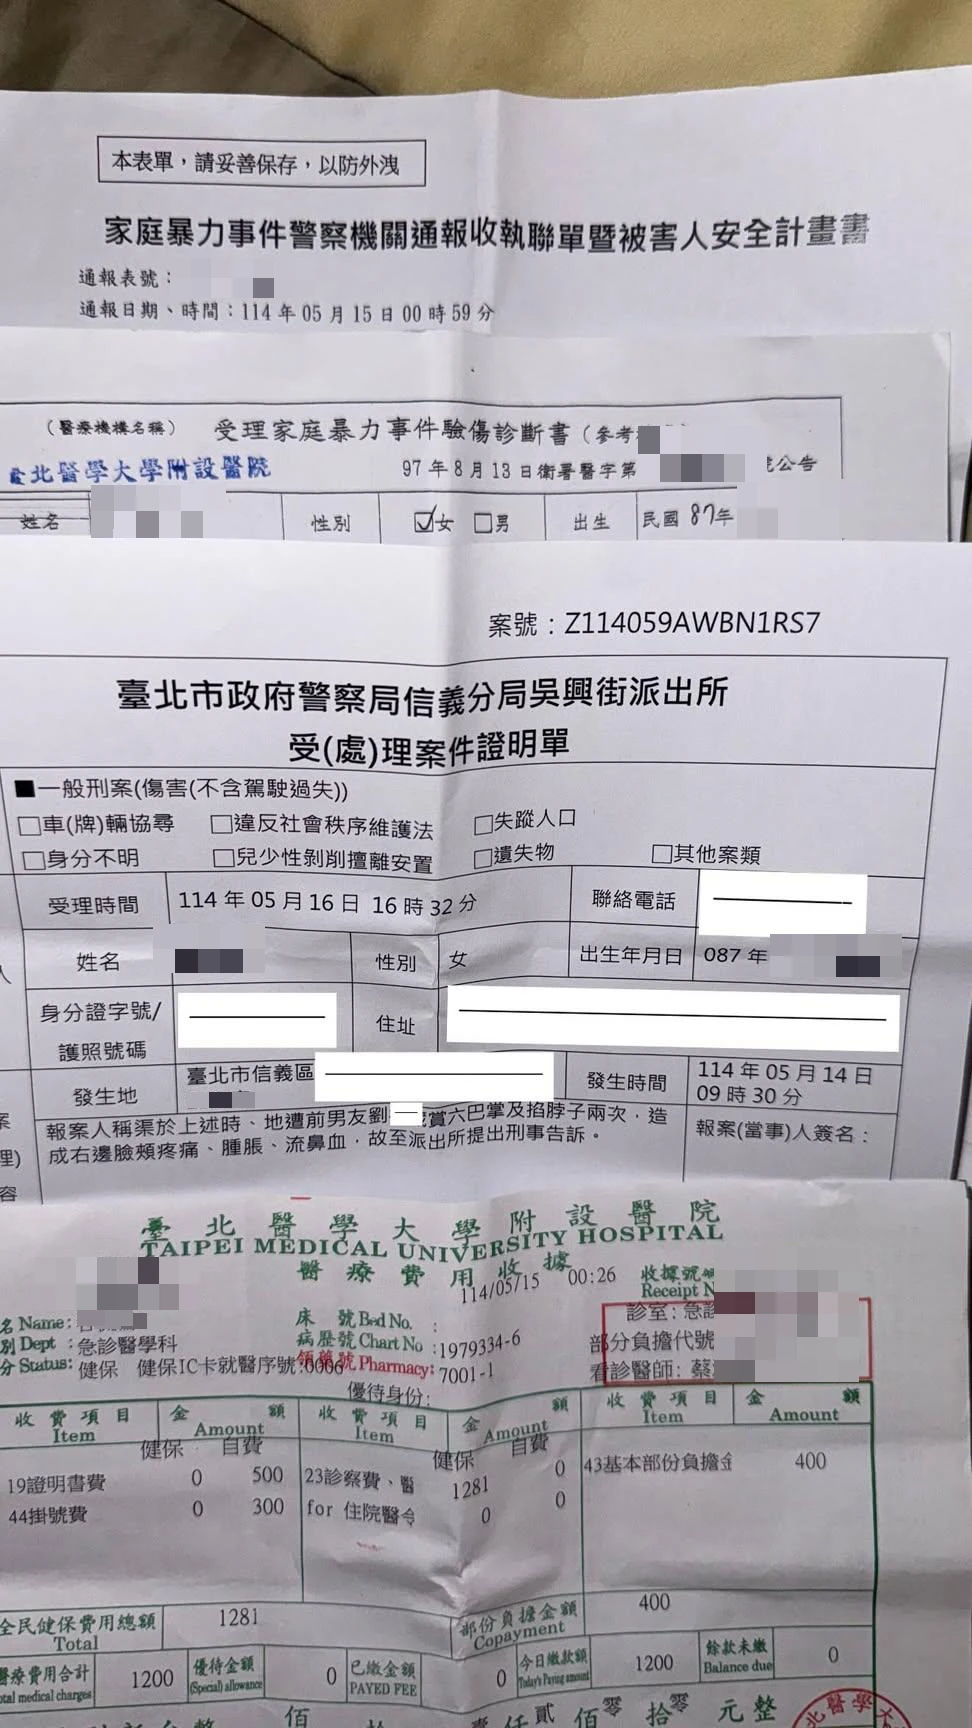 本表單，請妥善保存，以防外洩
家庭暴力事件警察機關通報收執聯單暨被害人安全計畫書
通報表號：
通報日期、時間：114年05月15日00時59分
（醫療機構名稱） 受理家庭暴力事件驗傷診斷書（參考
臺北醫學大學附設醫院 97年8月13日衛署醫字第 號公告
姓名 性別 ☑女 □男 出生 民國87年
案號：Z114059AWBN1RS7
臺北市政府警察局信義分局吳興街派出所
受(處)理案件證明單
■一般刑案(傷害(不含駕駛過失))
□車(牌)輛協尋 □違反社會秩序維護法 □失蹤人口
□身分不明 □兒少性剝削擅離安置 □遺失物 □其他案類
受理時間 114年05月16日 16時32分 聯絡電話
姓名 性別 女 出生年月日 087年
身分證字號/護照號碼 住址
發生地 臺北市信義區 發生時間 114年05月14日 09時30分
報案人稱渠於上述時、地遭前男友劉 賞六巴掌及掐脖子兩次，造
成右邊臉頰疼痛、腫脹、流鼻血，故至派出所提出刑事告訴。
報案(當事)人簽名：
理)
容
臺北醫學大學附設醫院
TAIPEI MEDICAL UNIVERSITY HOSPITAL
醫療費用收據
114/05/15 00:26 收據號
Receipt N
名Name: 床號Bed No. : 診室:急
別Dept :急診醫學科 病歷號Chart No :1979334-6 部分負擔代號
分Status: 健保 健保IC卡就醫序號:0006 領藥號Pharmacy: 7001-1 看診醫師:蔡
優待身份:
收費項目 Item 金額 Amount 收費項目 Item 金額 Amount 收費項目 Item 金額 Amount
健保 自費 健保 自費
19證明書費 0 500 23診察費、醫 1281 0 43基本部份負擔金 400
44掛號費 0 300 for 住院醫令 0 0
全民健保費用總額 Total 1281 部份負擔金額 Copayment 400
醫療費用合計 total medical charges 1200 優待金額 (Special) allowance 0 已繳金額 PAYED FEE 0 今日繳款額 Today's Paying amount 1200 餘款未繳 Balance due 0
佰 壹仟貳佰零拾零元整
北醫學大